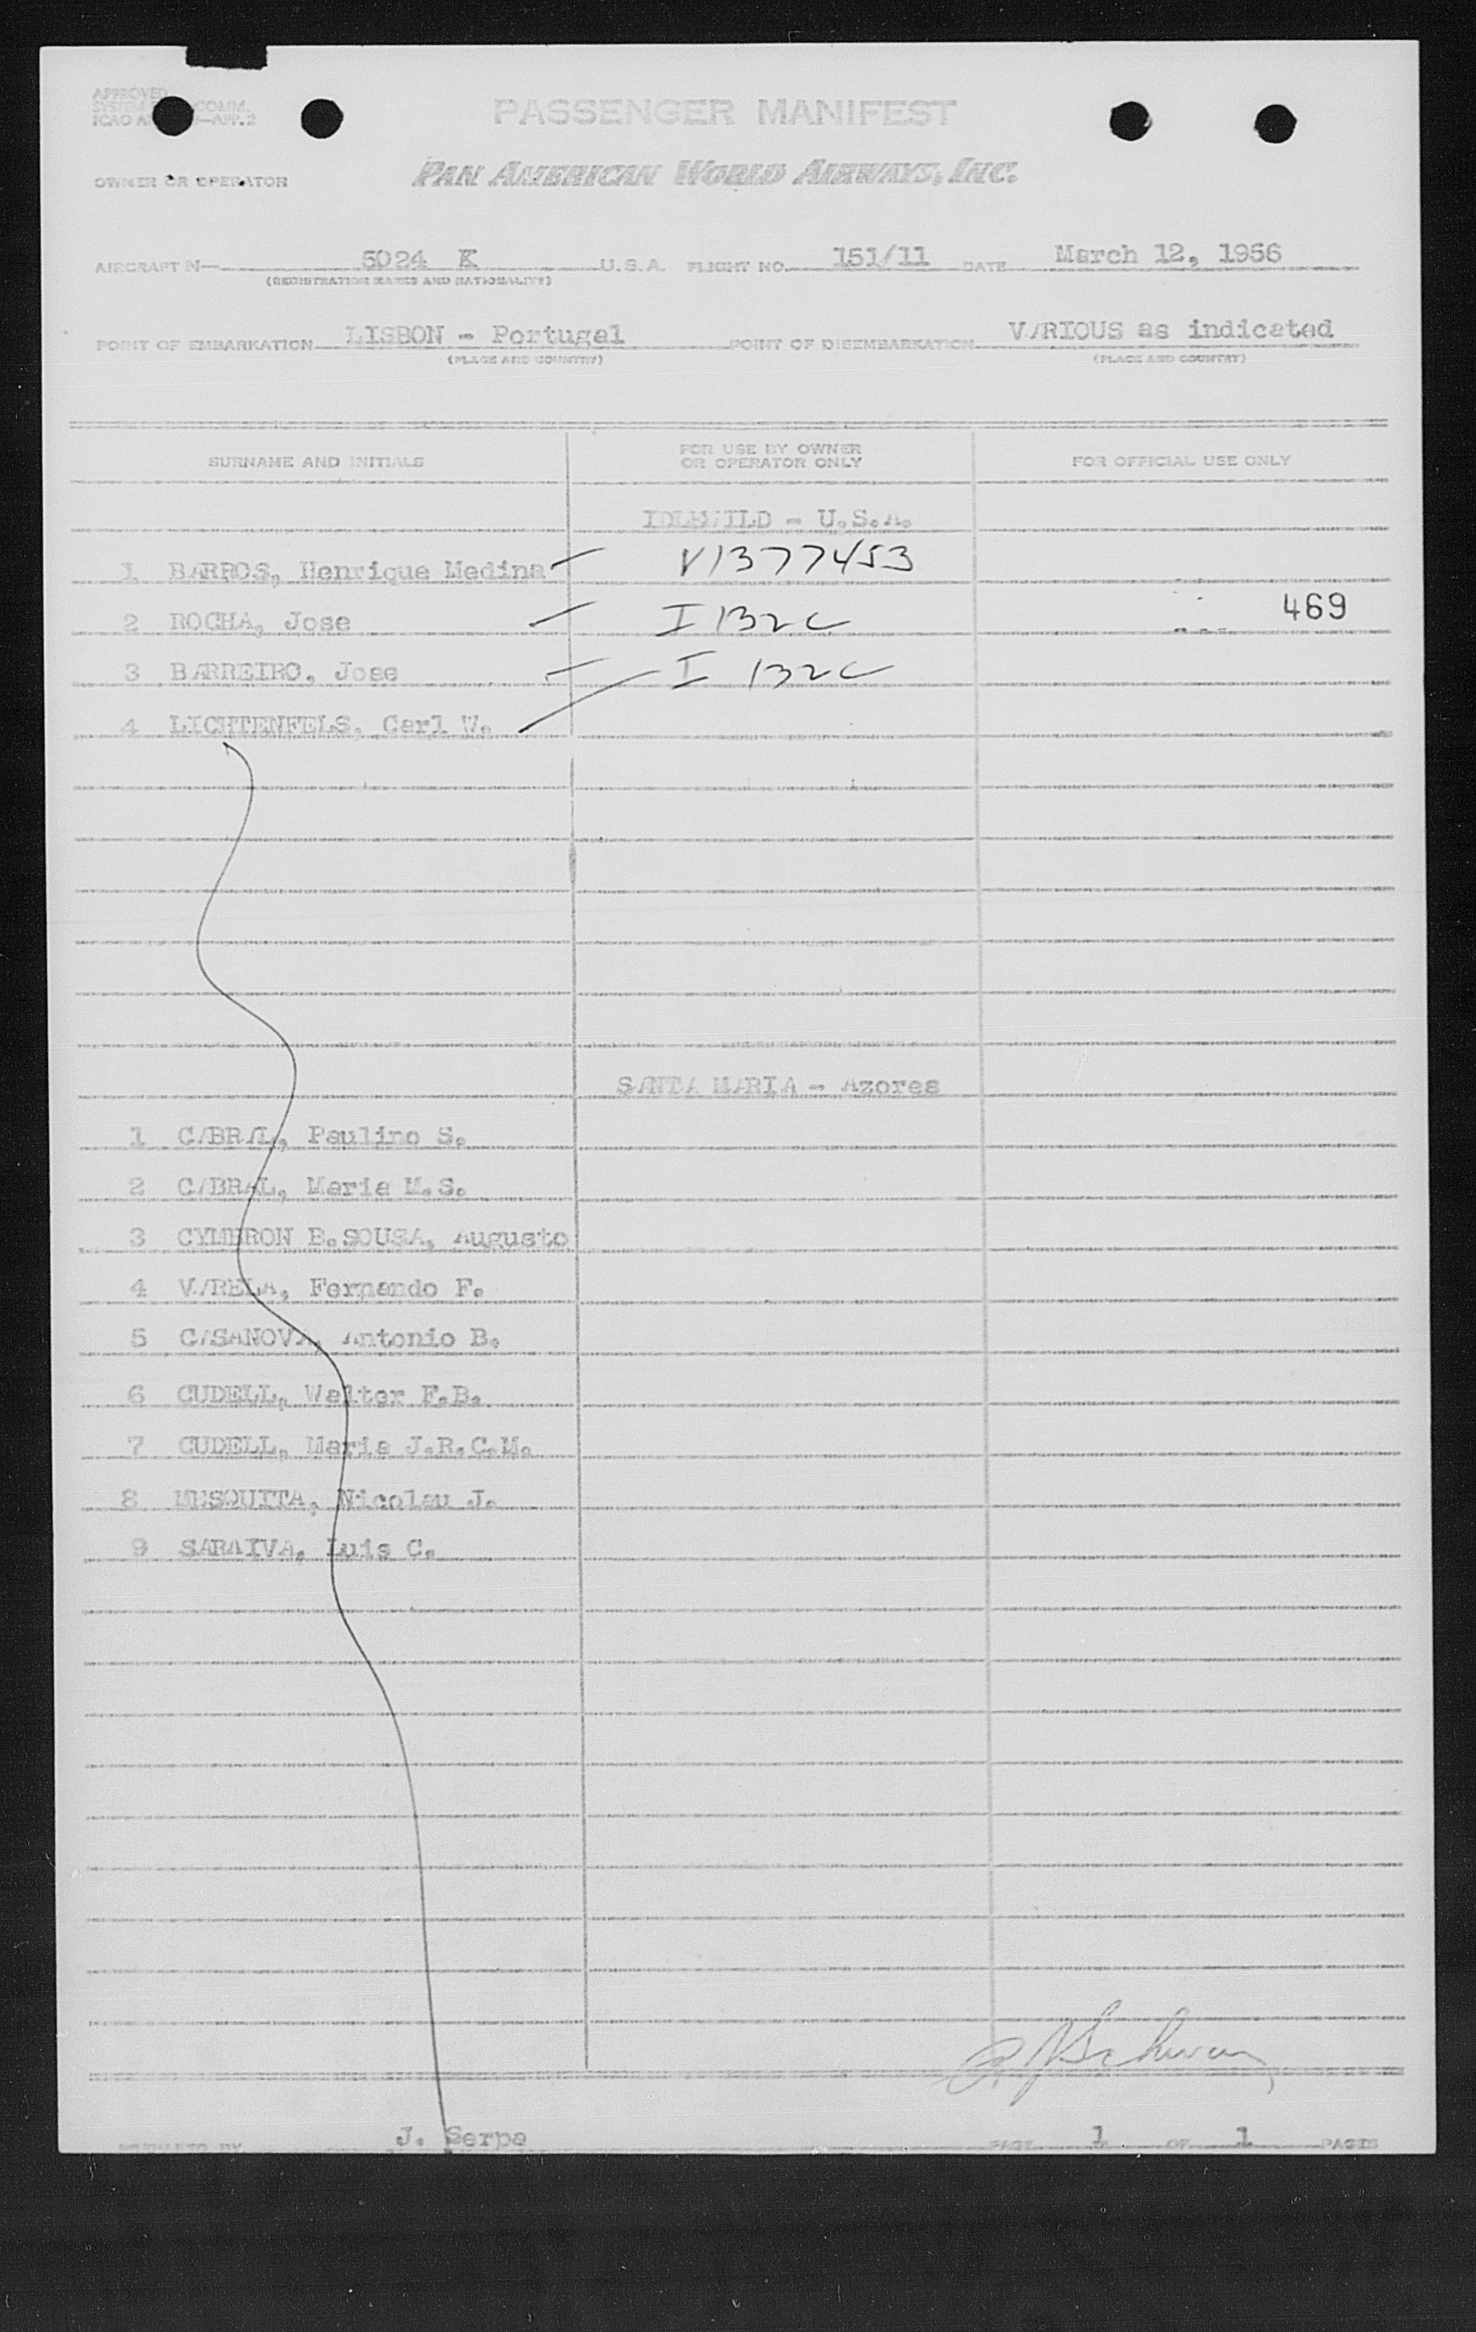 APPROVED
SYSTEM COMM.
ICAO —APP. 2
PASSENGER MANIFEST
OWNER OR OPERATOR PAN AMERICAN WORLD AIRWAYS, INC.
AIRCRAFT N— 6024 K U.S.A. FLIGHT NO. 151/11 DATE March 12, 1956
(REGISTRATION MARKS AND NATIONALITY)
POINT OF EMBARKATION LISBON - Portugal POINT OF DISEMBARKATION VARIOUS as indicated
(PLACE AND COUNTRY) (PLACE AND COUNTRY)
SURNAME AND INITIALS FOR USE BY OWNER OR OPERATOR ONLY FOR OFFICIAL USE ONLY
IDLEWILD - U.S.A.
1 BARROS, Henrique Medina V1377453
2 ROCHA, Jose I 132c 469
3 BARREIRO, Jose I 132c
4 LICHTENFELS, Carl W.
SANTA MARIA - Azores
1 CABRAL, Paulino S.
2 CABRAL, Maria M.S.
3 CYMBRON B.SOUSA, Augusto
4 VARELA, Fernando F.
5 CASANOVA, Antonio B.
6 CUDELL, Walter F.B.
7 CUDELL, Maria J.R.C.M.
8 MESQUITA, Nicolau J.
9 SARAIVA, Luis C.
PREPARED BY J. Serpa PAGE 1 OF 1 PAGES